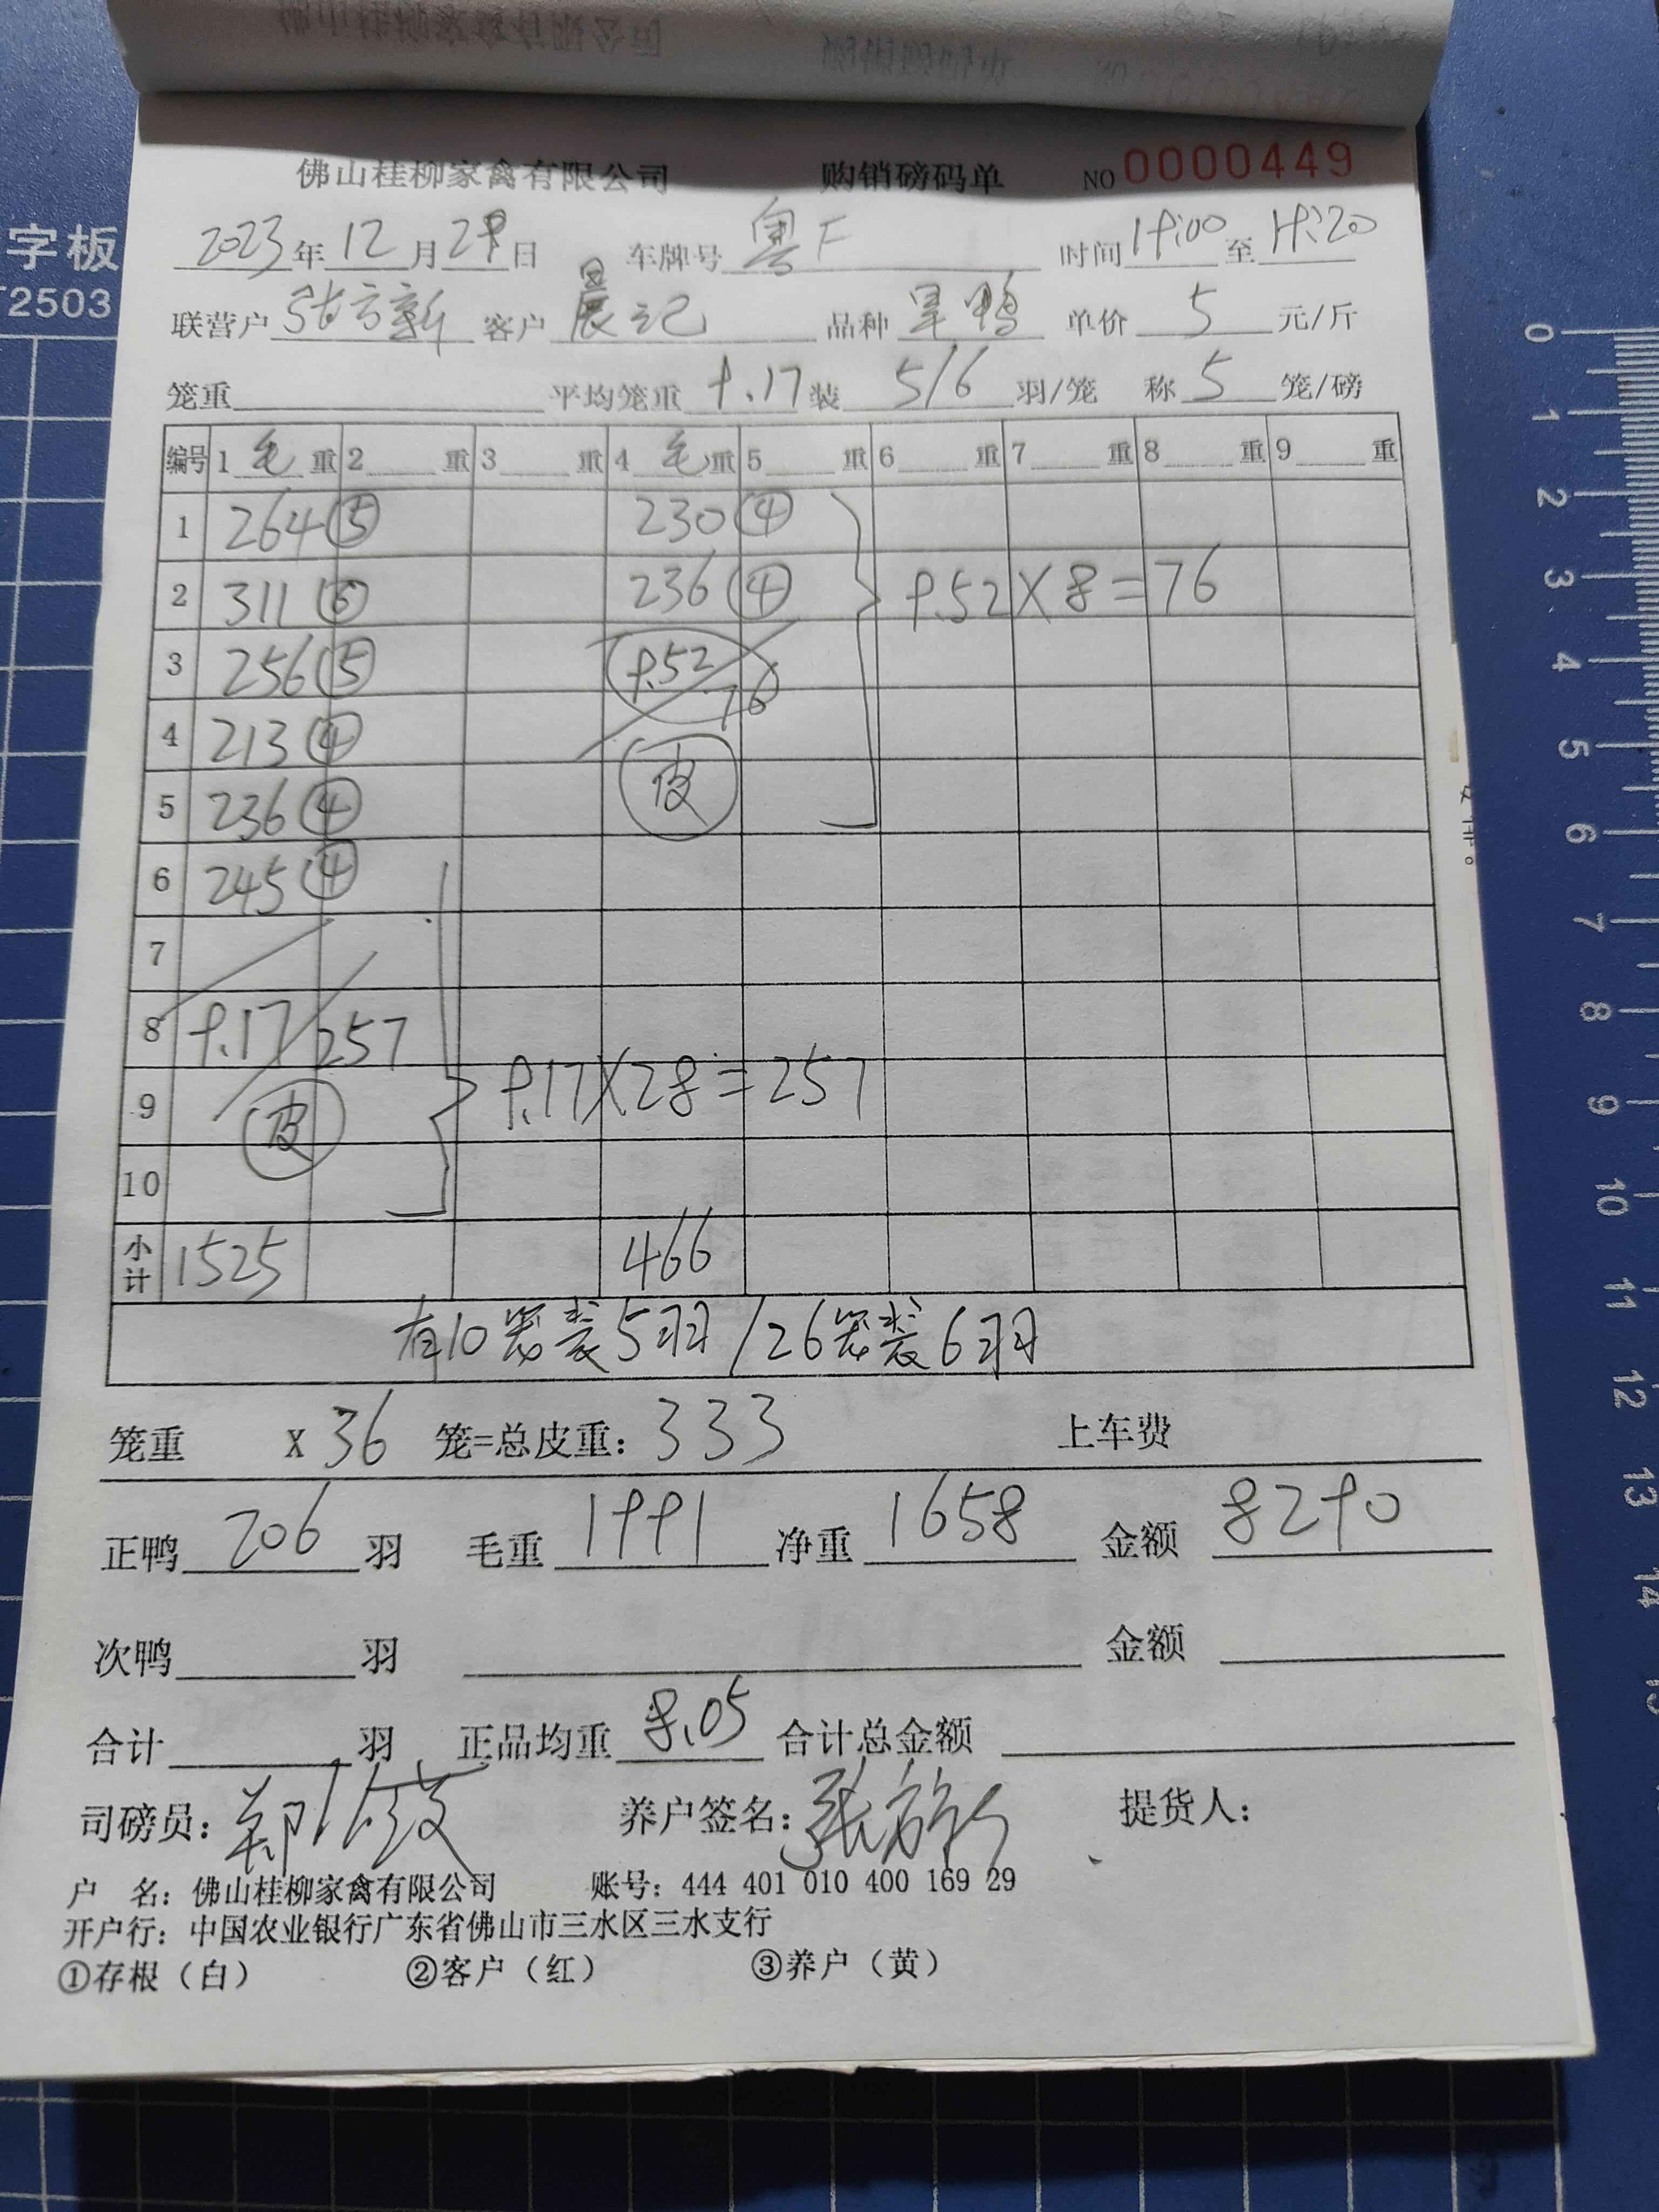 佛山桂柳家禽有限公司 购销磅码单 NO 0000449
2023年12月29日 车牌号 粤F 时间 19:00 至 19:20
联营户 张方新 客户 晨记 品种 旱鸭 单价 5 元/斤
笼重 平均笼重 9.17 装 5/6 羽/笼 称 5 笼/磅
编号 1 毛 重 2 重 3 重 4 毛 重 5 重 6 重 7 重 8 重 9 重
1 264 ⑤ 230 ④
2 311 ⑥ 236 ④ 9.52×8=76
3 256 ⑤ 9.52/76
4 213 ④ 皮
5 236 ④
6 245 ④
7
8 9.17/257
9 皮 9.17×28=257
10
小计 1525 466
有10笼装5羽/26笼装6羽
笼重 x 36 笼=总皮重: 333 上车费
正鸭 206 羽 毛重 1991 净重 1658 金额 8290
次鸭 羽 金额
合计 羽 正品均重 8.05 合计总金额
司磅员: 养户签名: 张方新 提货人:
户 名: 佛山桂柳家禽有限公司 账号: 444 401 010 400 169 29
开户行: 中国农业银行广东省佛山市三水区三水支行
①存根（白） ②客户（红） ③养户（黄）
字板
2503
0
1
2
3
4
5
6
7
8
9
10
11
12
13
14